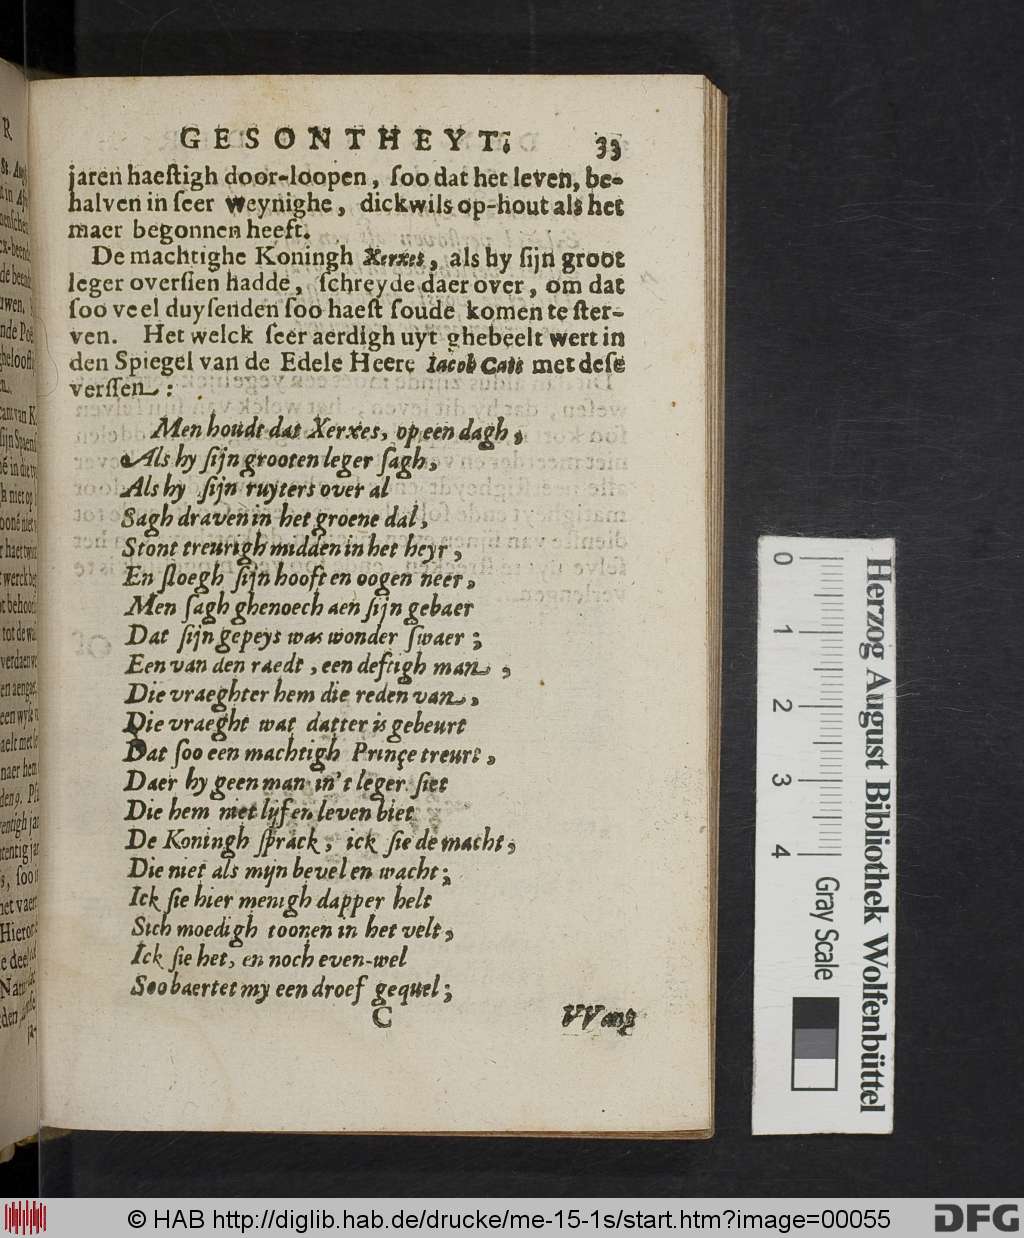 GESONTHEYT. 33
jaren haeſtigh door-loopen, ſoo dat het leven, be-
halven in ſeer weynighe, dickwils op-hout als het
maer begonnen heeft.
De machtighe Koningh Xerxes, als hy ſijn groot
leger overſien hadde, ſchreyde daer over, om dat
ſoo veel duyſenden ſoo haeſt ſoude komen te ſter-
ven. Het welck ſeer aerdigh uyt ghebeelt wert in
den Spiegel van de Edele Heere Iacob Cats met deſe
verſſen:
Men houdt dat Xerxes, op een dagh,
Als hy ſijn grooten leger ſagh,
Als hy ſijn ruyters over al
Sagh draven in het groene dal,
Stont treurigh midden in het heyr,
En ſloegh ſijn hooft en oogen neer,
Men ſagh ghenoech aen ſijn gebaer
Dat ſijn gepeys was wonder ſwaer;
Een van den raedt, een deftigh man,
Die vraeghter hem die reden van,
Die vraeght wat datter is gebeurt
Dat ſoo een machtigh Prinçe treurt,
Daer hy geen man in't leger ſiet
Die hem niet lijf en leven biet
De Koningh ſprack, ick ſie de macht,
Die niet als mijn bevel en wacht;
Ick ſie hier menigh dapper helt
Sich moedigh toonen in het velt,
Ick ſie het, en noch even-wel
Soo baertet my een droef gequel;
C VVant
0 1 2 3 4
Gray Scale
Herzog August Bibliothek Wolfenbüttel
© HAB http://diglib.hab.de/drucke/me-15-1s/start.htm?image=00055
DFG